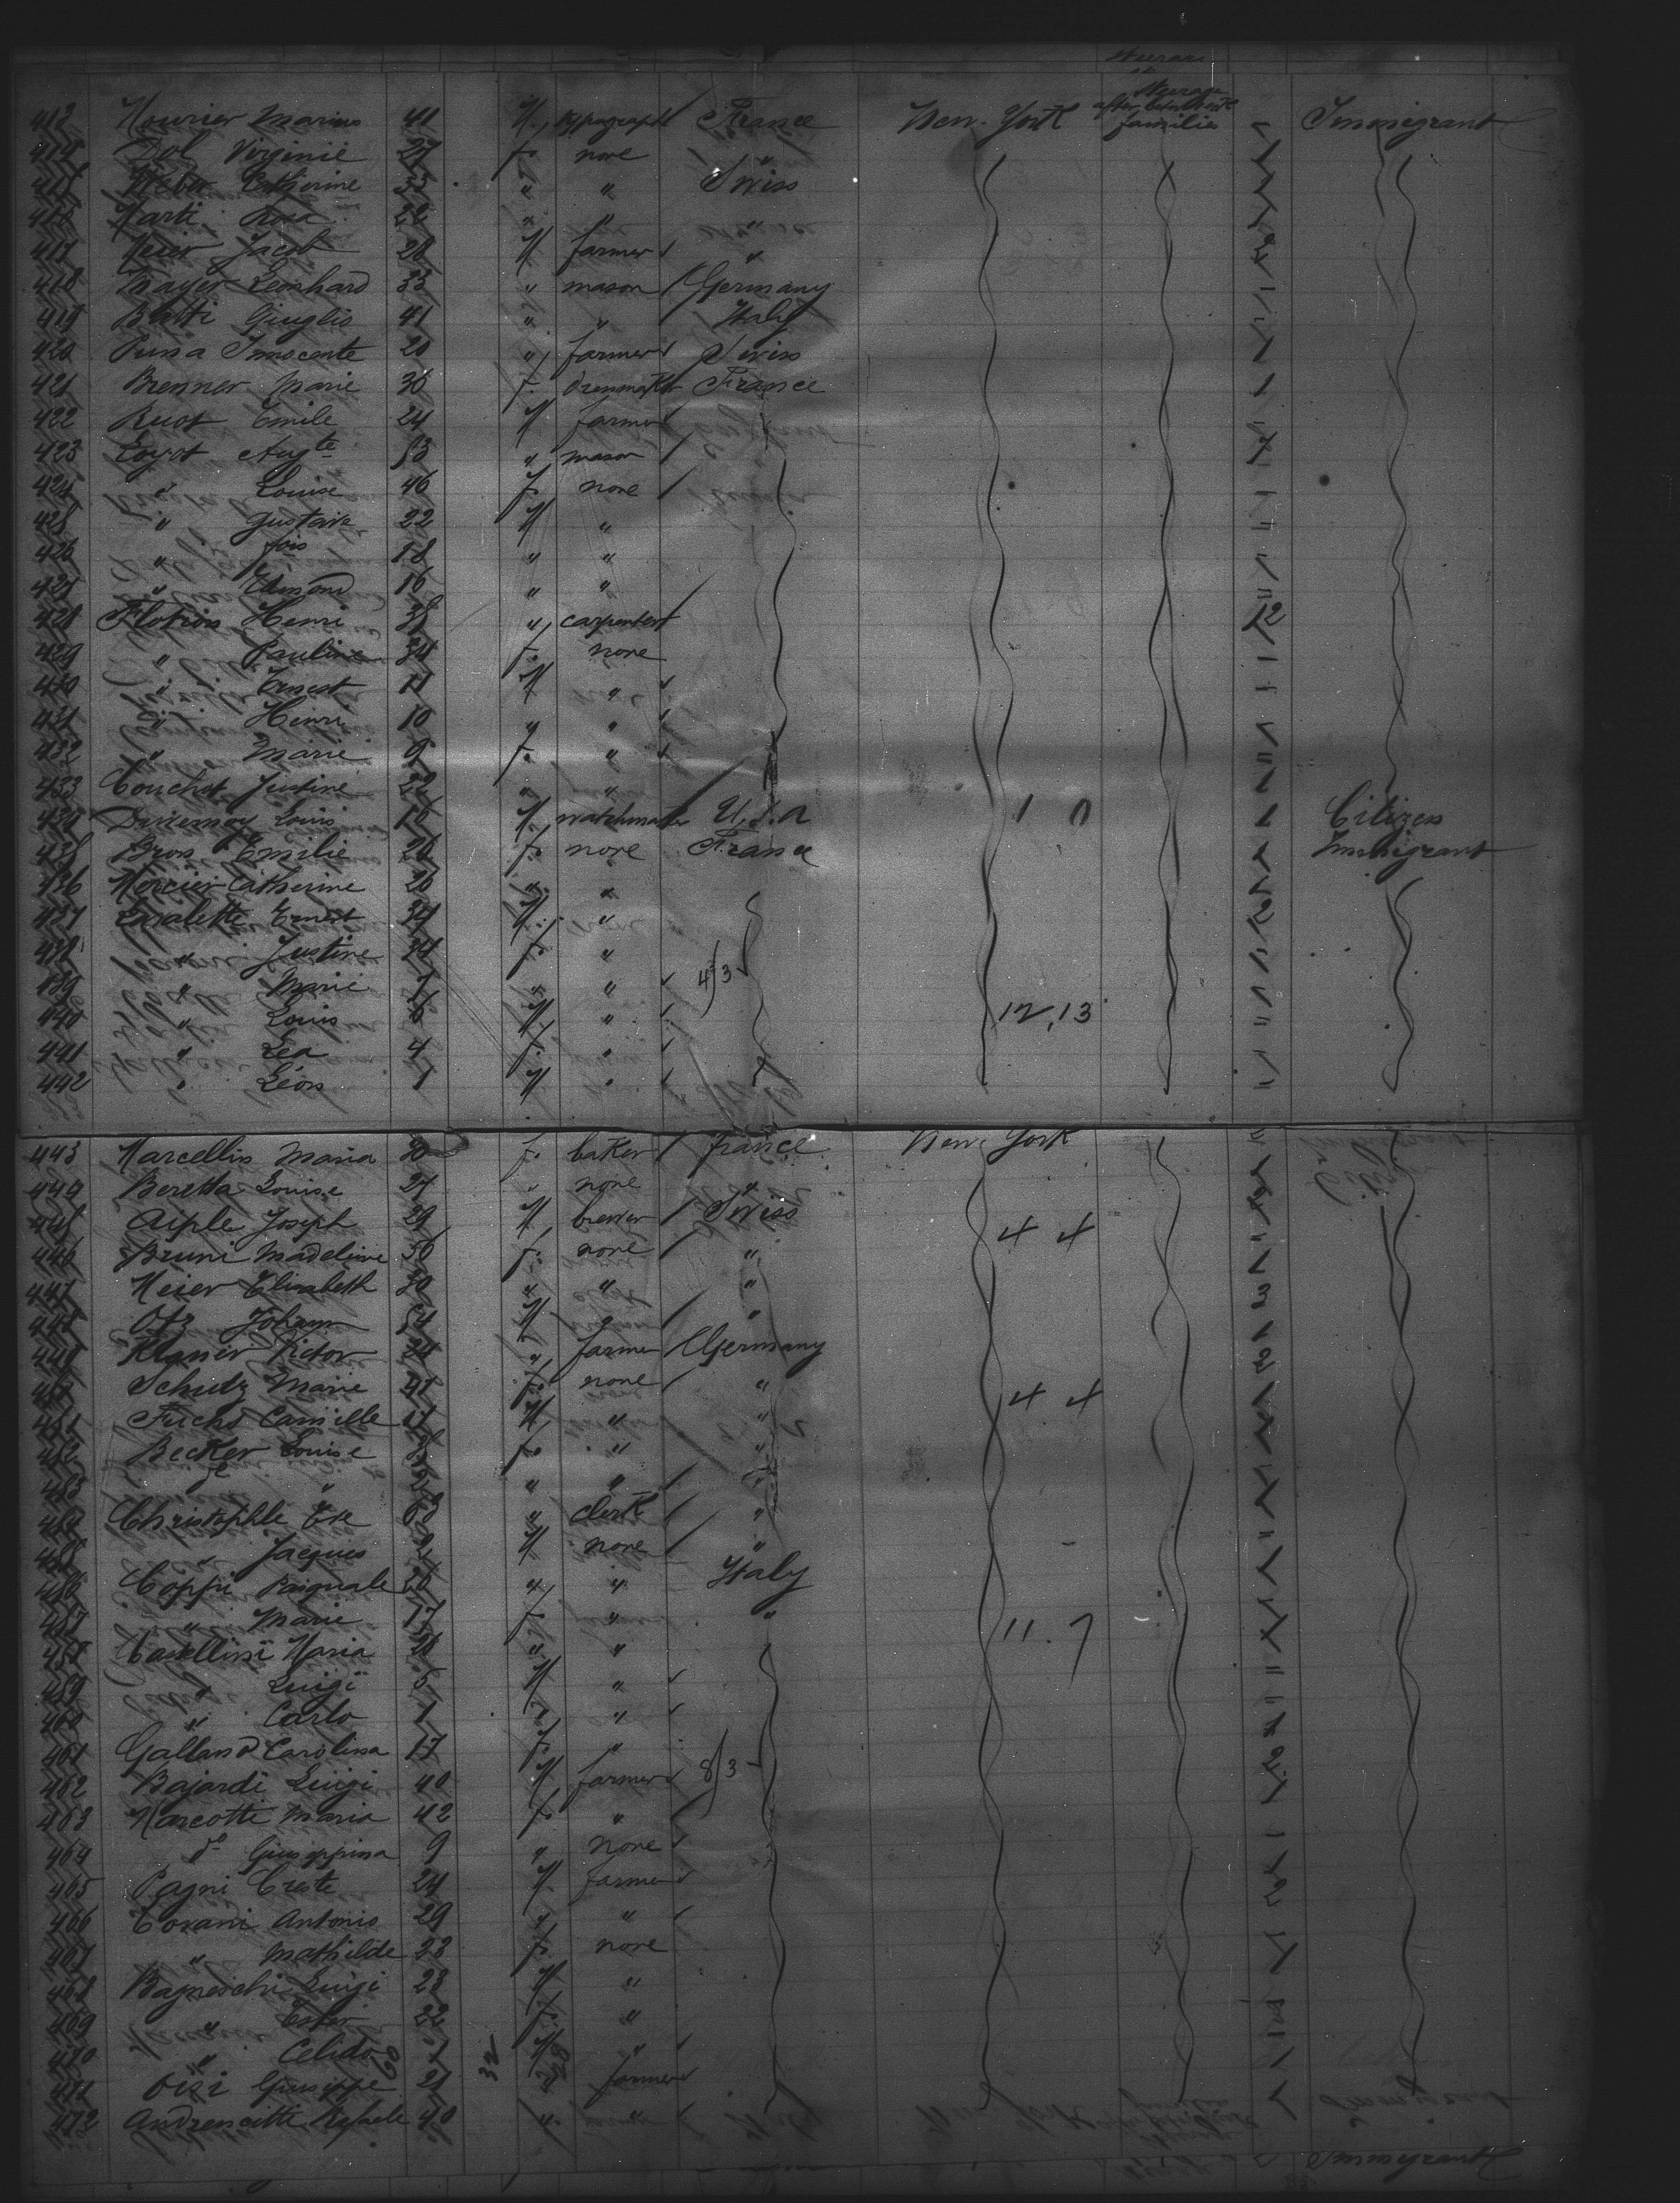 Steerage
413 Mourier Marius 41 M. typograph France New-York Steerage after between families Immigrant
414 Dol Virginie 27 f. none "
415 Weber Catherine 33 " " Swiss
416 Marti Rosa 22 " " "
417 Meier Jacob 28 M farmer "
418 Mayer Leonhard 33 " mason Germany
419 Blatti Giuglio 41 " " Italy
420 Pusia Innocente 20 " farmer Swiss
421 Brenner Marie 36 f. dressmaker France
422 Ruot Emile 24 M farmer
423 Loyot Augte 53 " mason
424 " Louise 46 f. none
425 " Gustave 22 M "
426 " fois 18 " "
427 " Edmond 16 " "
428 Flotion Henri 38 " carpenter 12
429 " Pauline 34 f. none
430 " Ernest 11 M "
431 " Henri 10 " "
432 " Marie 9 f. " "
433 Couchot Justine 22 " "
434 Duvernoy Louis 18 M. watchmaker U.S.A 1 0 Citizen
435 Bron Emilie 26 f. none France Immigrant
436 Mercier Catherine 26 " " "
437 Lavalette Ernest 34 M. "
438 " Justine 24 f. "
439 " Marie 7 " " 4/3
440 " Louis 6 M " 12,13
441 " Léa 4 f. "
442 " Léon 1 M "
443 Marcellin Maria 30 f. baker france New-York
444 Beretta Louise 27 " none "
445 Aiple Joseph 29 M brewer Swiss 4 4
446 Bruni Madeleine 56 f. none "
447 Meier Elisabeth 30 " " "
448 Otz Johann 54 M " "
449 Klanir Victor 24 " farmer Germany
450 Schutz Marie 47 f. none " 4 4
451 Fuchs Camille 11 M " "
452 Becker Louise 38 f. " "
453 do " 2 " " "
454 Christophle Eve 63 " clerk "
455 " Jacques 2 M none "
456 Coppi Pasquale 26 " " Italy
457 " Marie 17 f. " " 11.7
458 Cavellini Maria 28 " "
459 " Luigi 5 M "
460 " Carlo 1 " "
461 Galland Carolina 17 f. "
462 Bajardi Luigi 40 M farmer 8/3
463 Marcotti Maria 42 f. "
464 do Giuseppina 9 " none
465 Pagni Oreste 24 M farmer
466 Covani Antonio 29 " "
467 " Mathilde 23 f. none
468 Bagneschi Luigi 28 M "
469 " Ester 22 f. "
470 " Celido 1 M "
471 Oisi Giuseppe 21 " farmer
472 Andrencitti Rafaele 40 " "
32 28
Immigrant